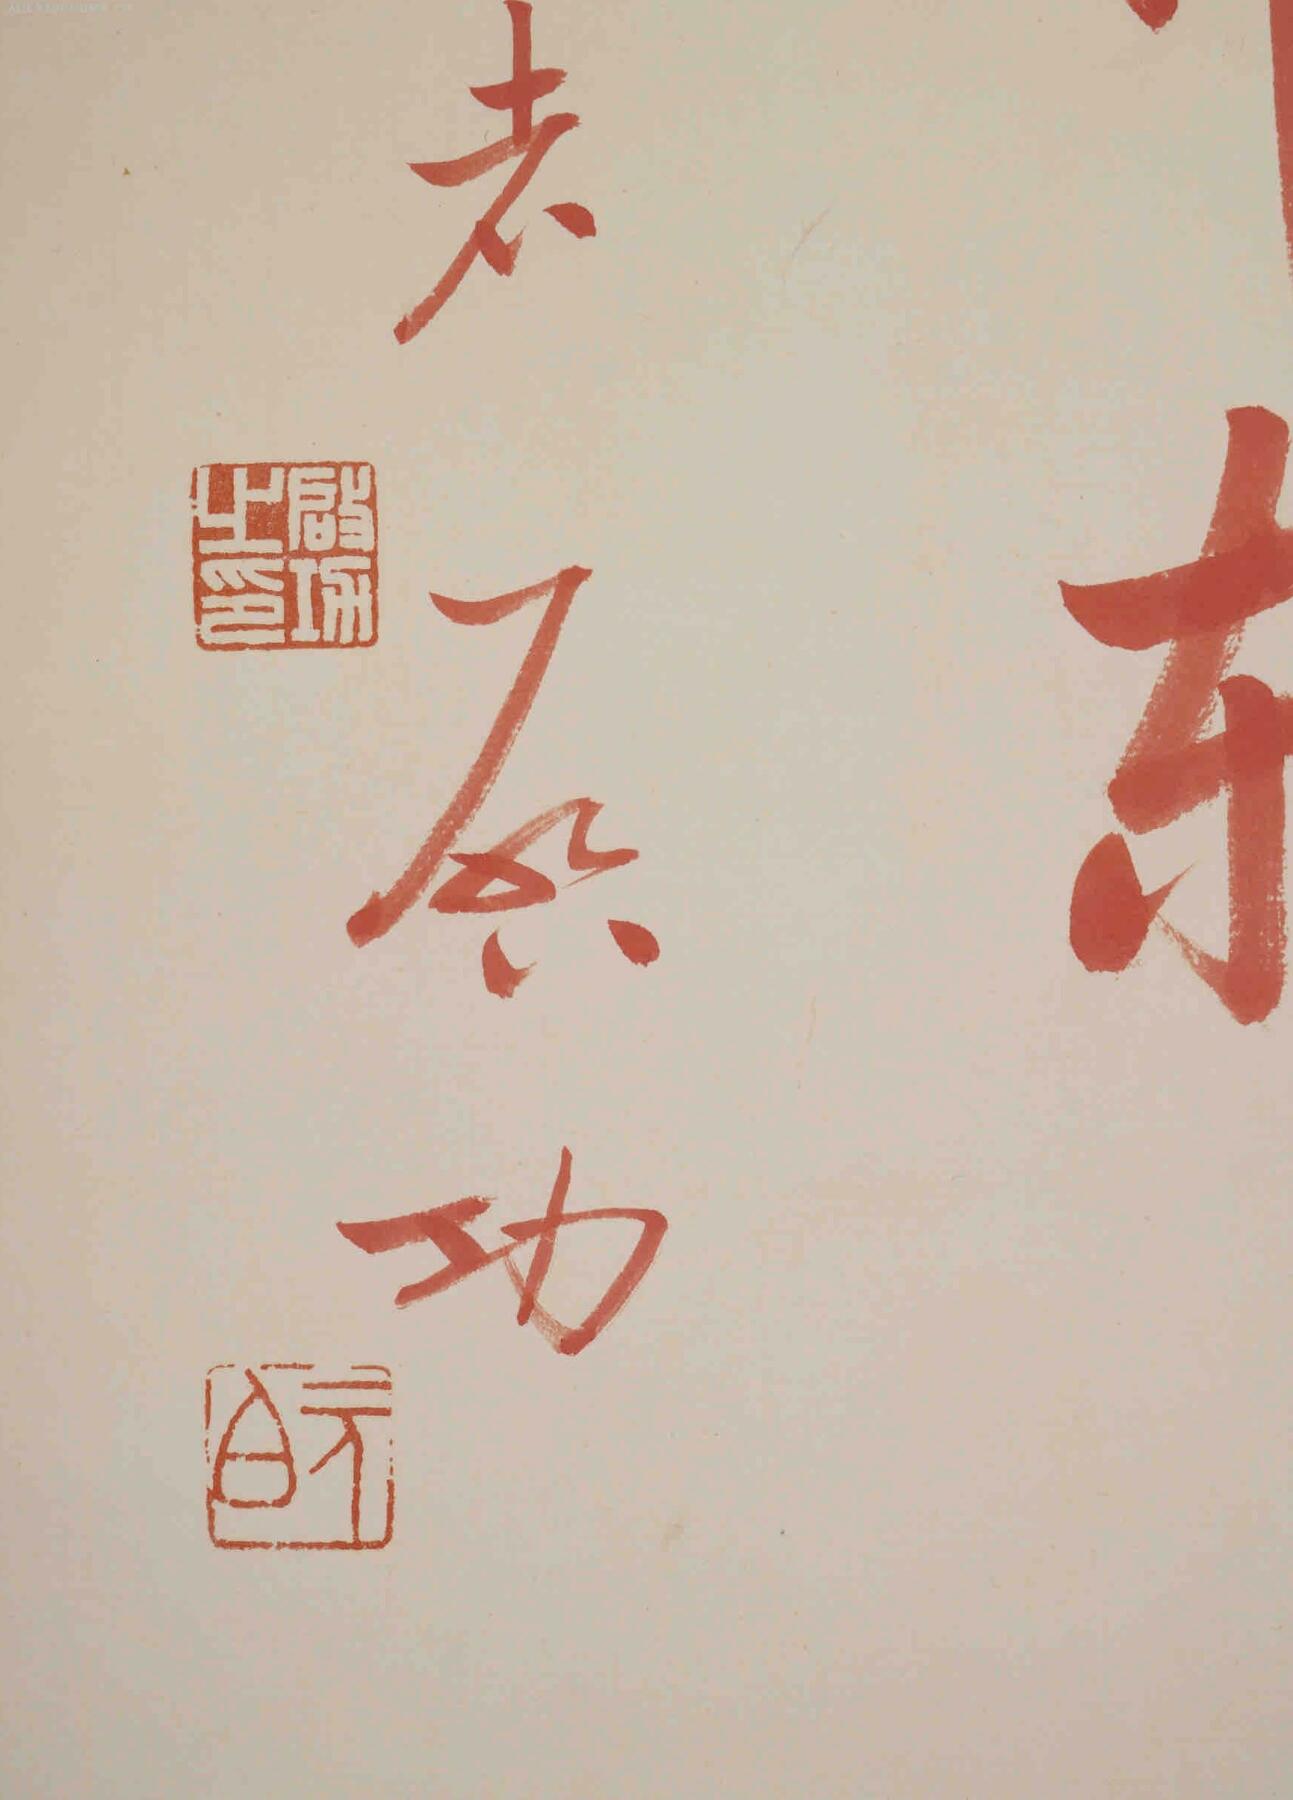 东
者启功
启功之印
元白